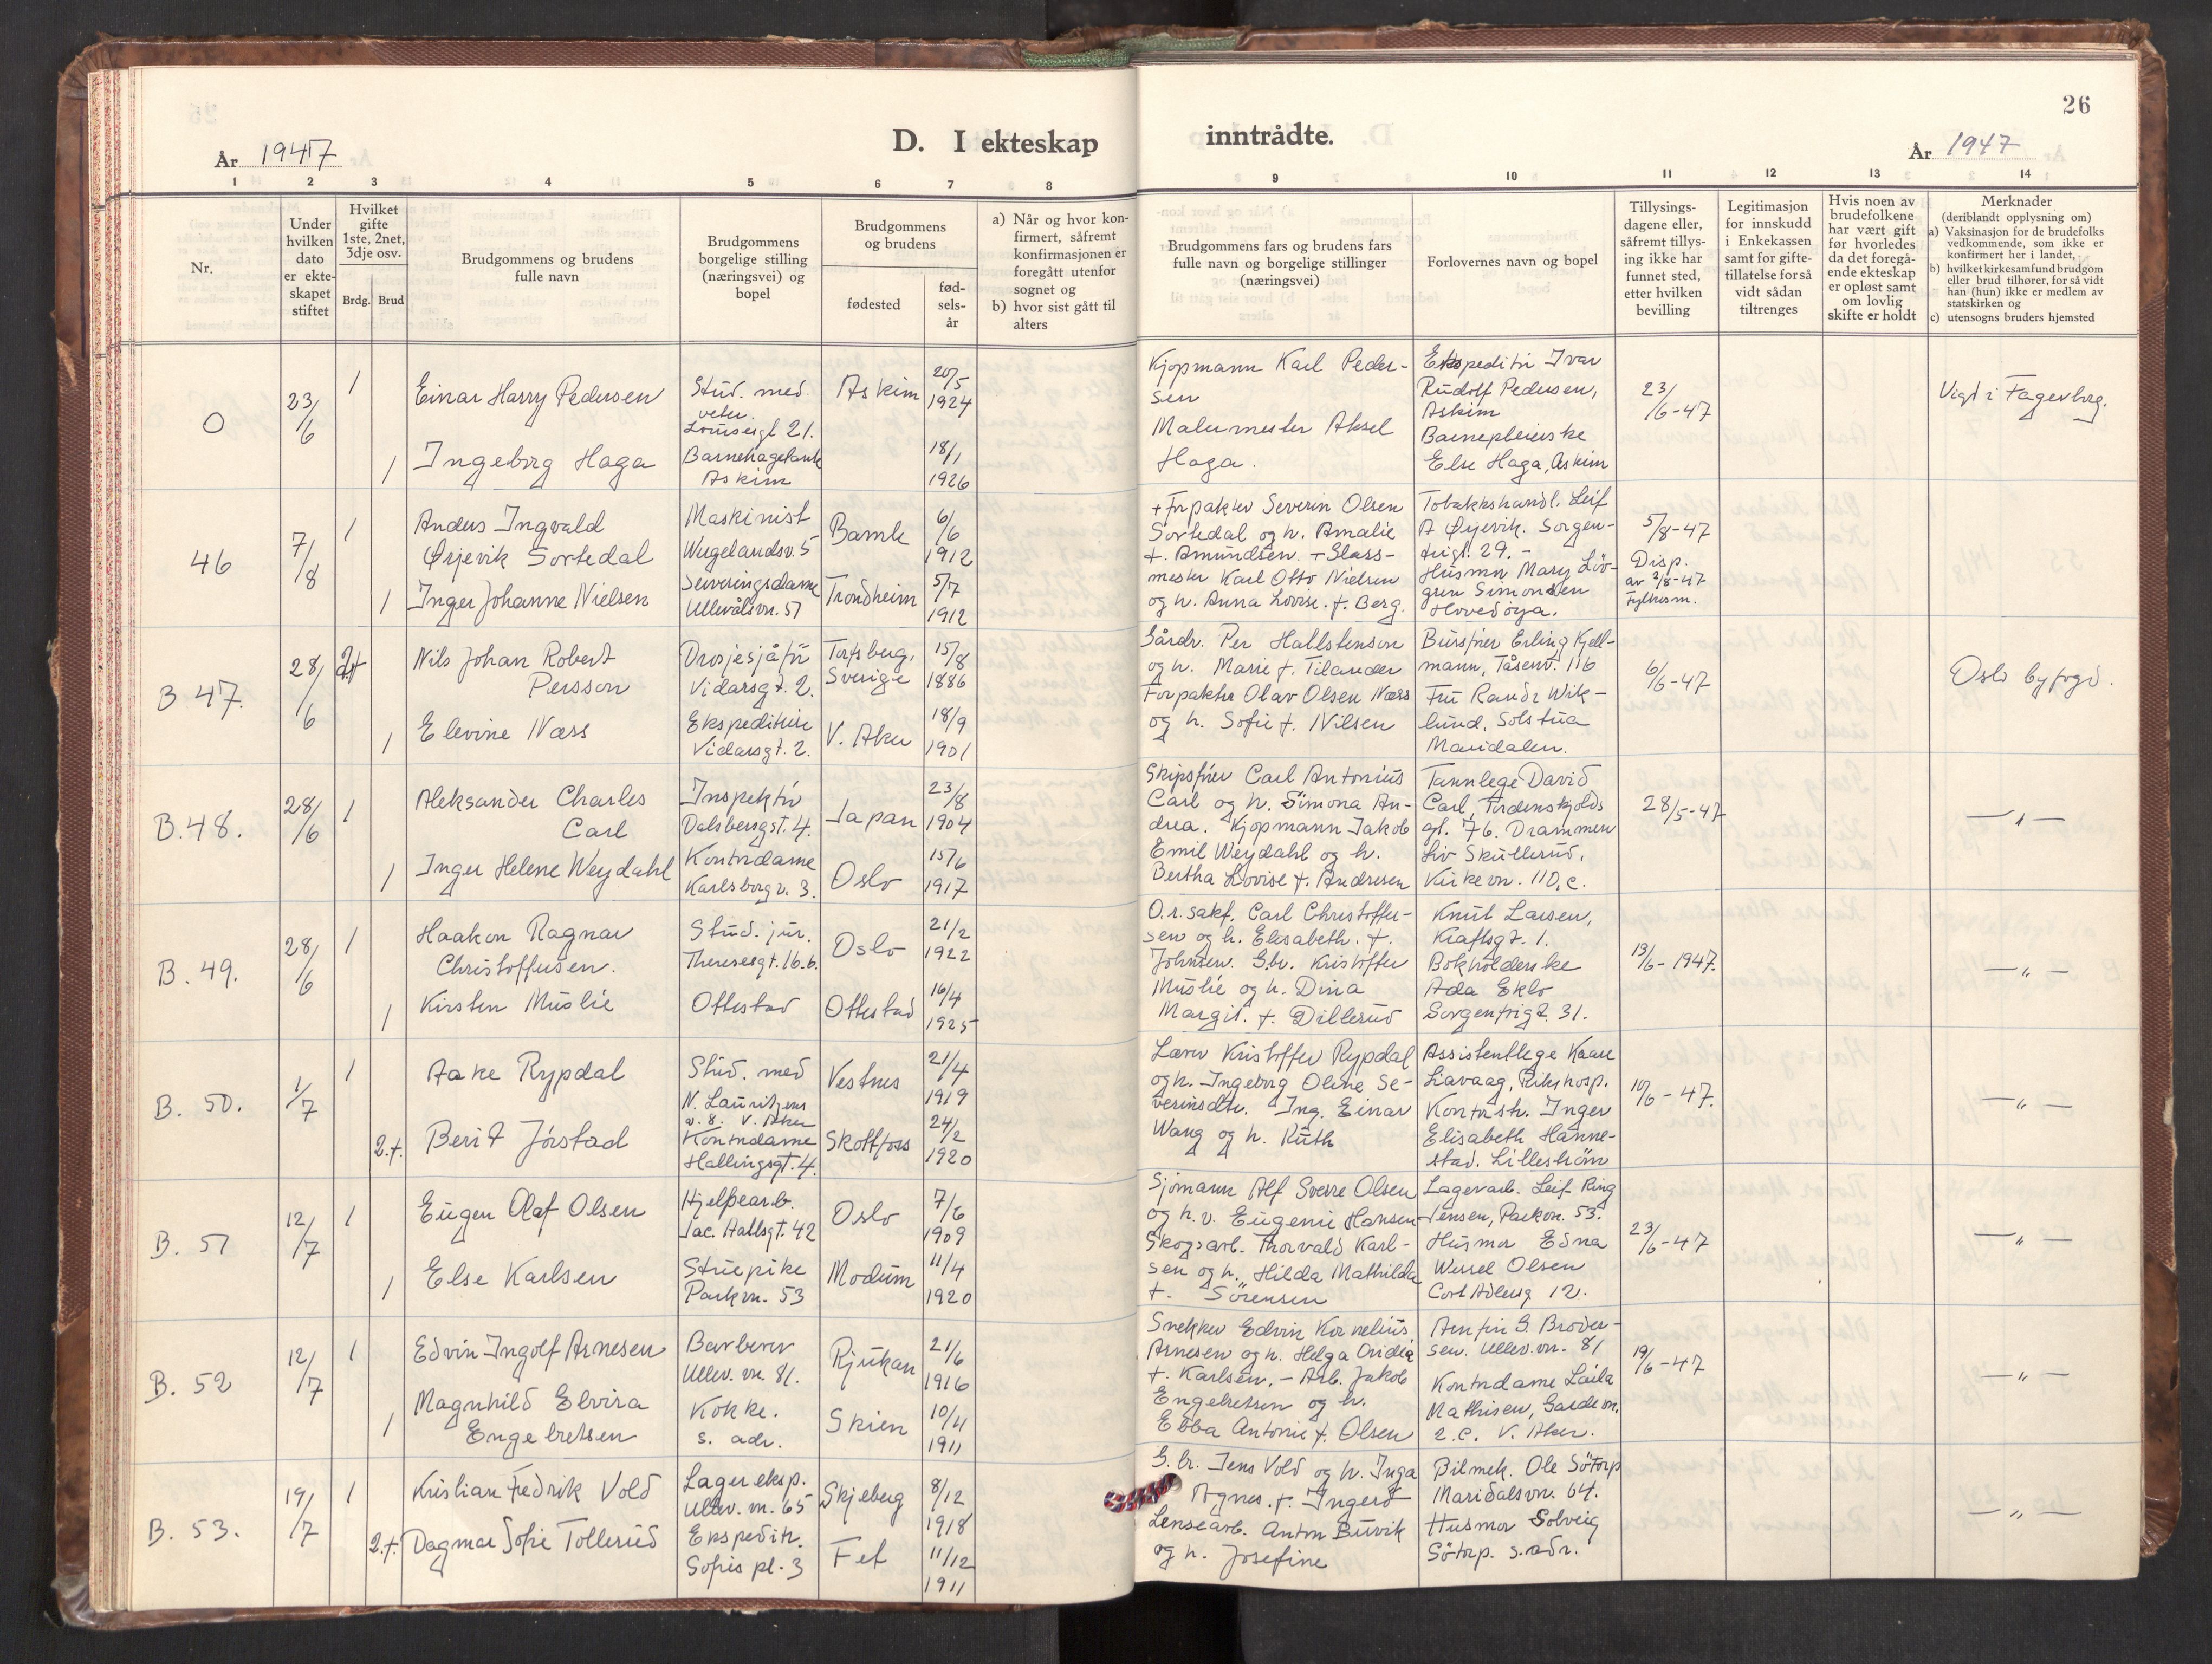 26
D. I ekteskap inntrådte.
År 1947
År 1947
1 2 3 4 5 6 7 8 9 10 11 12 13 14
Nr.
Under
hvilken
dato
er ekte-
skapet
stiftet
Hvilket
gifte
1ste, 2net,
3dje osv.
Brdg. Brud
Brudgommens og brudens
fulle navn
Brudgommens
borgelige stilling
(næringsvei) og
bopel
Brudgommens
og brudens
fødested
fød-
sels-
år
a) Når og hvor kon-
firmert, såfremt
konfirmasjonen er
foregått utenfor
sognet og
b) hvor sist gått til
alters
Brudgommens fars og brudens fars
fulle navn og borgelige stillinger
(næringsvei)
Forlovernes navn og bopel
Tillysings-
dagene eller,
såfremt tillys-
ing ikke har
funnet sted,
etter hvilken
bevilling
Legitimasjon
for innskudd
i Enkekassen
samt for gifte-
tillatelse for så
vidt sådan
tiltrenges
Hvis noen av
brudefolkene
har vært gift
før hvorledes
da det foregå-
ende ekteskap
er opløst samt
om lovlig
skifte er holdt
Merknader
(deriblandt opplysning om)
a) Vaksinasjon for de brudefolks
vedkommende, som ikke er
konfirmert her i landet,
b) hvilket kirkesamfund brudgom
eller brud tilhører, for så vidt
han (hun) ikke er medlem av
statskirken og
c) utensogns bruders hjemsted
O
23/6
1
Einar Harry Pedersen
Stud. med.
veter.
Louisesgt 21.
Askim
20/5
1924
1
Ingeborg Haga
Askim
18/1
1926
Kjøpmann Karl Peder-
sen
Malermester Aksel
Haga.
Ekspeditør Ivar
Rudolf Pedersen,
Askim
Barnepleierske
Else Haga, Askim
23/6-47
Vigd i Fagerborg.
46
7/8
1
Anders Ingvald
Ørjevik Sortedal
Maskinist
Wugelandsv. 5
Bamle
6/6
1912
1
Inger Johanne Nielsen
Serveringsdame
Ullevålsvn. 57
Trondheim
5/7
1912
+ Forpakter Severin Olsen
Sortedal og h. Amalie
f. Amundsen. + Glass-
mester Karl Otto Nielsen
og h. Anna Lovise. f. Berg.
Tobakkshandl. Leif
A Ørjevik. Sorgen-
frigt. 29. -
Husmor Mary Löv-
gren Simonsen
Hovedöya.
5/8-47
Disp.
av 2/8-47
Fylkesm.
B 47.
28/6
2 f
Nils Johan Robert
Persson
Drosjesjåfør
Vidarsgt. 2.
Torpsberg,
Sverige
15/8
1886
1
Elevine Næss
Ekspeditrise
Vidarsgt. 2.
V. Aker
18/9
1901
Gårdbr. Per Hallstenson
og h. Marie f. Tilander
Forpakter Olav Olsen Næss
og h. Sofie f. Nilsen
Burefører Erling Kjell-
mann, Tåsenv. 116
Fru Randi Wik-
lund, Solstua
Maridalen.
6/6-47
Oslo byfogd.
B. 48.
28/6
1
Aleksander Charles
Carl
Inspektør
Dalsbergst. 4.
Japan
23/8
1904
1
Inger Helene Weydahl
Kontordame
Karlsborgv. 3.
Oslo
15/6
1917
Skipsfører Carl Antonius
Carl og h. Simona An-
drea. Kjøpmann Jakob
Emil Weydahl og h.
Bertha Lovise f. Andresen
Tannlege David
Carl, Tordenskjolds
gt. 76. Drammen
Liv Skullerud,
Kirkevn. 110, c.
28/5-47
— " —
B. 49.
28/6
1
Haakon Ragnar
Christoffersen.
Stud. jur.
Theresesgt. 16.b.
Oslo
21/2
1922
1
Kirsten Muslie
Ottestad
Ottestad
16/4
1925
O.r. sakf. Carl Christoffer-
sen og h. Elisabeth. f.
Johnsen. G.br. Kristoffer
Muslie og h. Dina
Margit. f. Dillerud
Knut Larsen,
Kraftsgt. 1.
Bokholderske
Ada Eklo
Sorgenfrigt. 31.
13/6-1947.
— " —
B. 50.
1/7
1
Aake Rypdal
Stud. med
N. Lauritzens
v. 8. V. Aker
Vestnes
21/4
1919
2. f.
Berit Jörstad
Kontordame
Hallingsgt. 4.
Skotfoss
24/2
1920
Lærer Kristoffer Rypdal
og h. Ingeborg Oline Se-
verinsdtr. Ing. Einar
Wang og h. Ruth
Assistentlege Kaare
Liavaag, Rikshosp.
Kontorstr. Inger
Elisabeth Hanne-
stad. Lilleström
10/6-47.
— " —
B. 51
12/7
1
Eugen Olaf Olsen
Hjelpearb.
Jac. Aallsgt. 42
Oslo
7/6
1909
1
Else Karlsen
Stuepike
Parkvn. 53
Modum
11/4
1920
Sjømann Alf Sverre Olsen
og h. v. Eugenie Hansen
Skogsarb. Thorvald Karl-
sen og h. Hilda Mathilda
f. Sörensen
Lagerarb. Leif Ring
Jensen, Parkvn. 53.
Husmor Edna
Wessel Olsen
Cort Adelersg 12.
23/6-47
— " —
B. 52
12/7
1
Edvin Ingolf Arnesen
Barberer
Ullev. vn. 81.
Rjukan
21/6
1916
1
Magnhild Elvira
Engebretsen
Kokke.
s. adr.
Skien
10/4
1911
Snekker Edvin Kornelius
Arnesen og h. Helga Ovidia
f. Karlsen. - Arb. Jakob
Engebretsen og h.
Ebba Antonie f. Olsen
Arnfin G. Broder-
sen. Ullev. vn. 81
Kontordame Laila
Mathisen, Gardevn.
2. C. V. Aker.
19/6-47
— " —
B. 53.
19/7
1
Kristian Fredrik Vold
Lagereksp.
Ullev. vn. 65
Skjeberg
8/12
1918
2. f.
Dagmar Sofie Tollerud
Ekspeditr.
Sofies pl. 3
Fet
11/12
1911
G. br. Jens Vold og h. Inga
Agnes. f. Ingerö
Lensearb. Anton Buvik
og h. Josefine
Bilmek. Ole Sötorp
Maridalsvn. 64.
Husmor Solveig
Sötorp. s. adr.
— " —